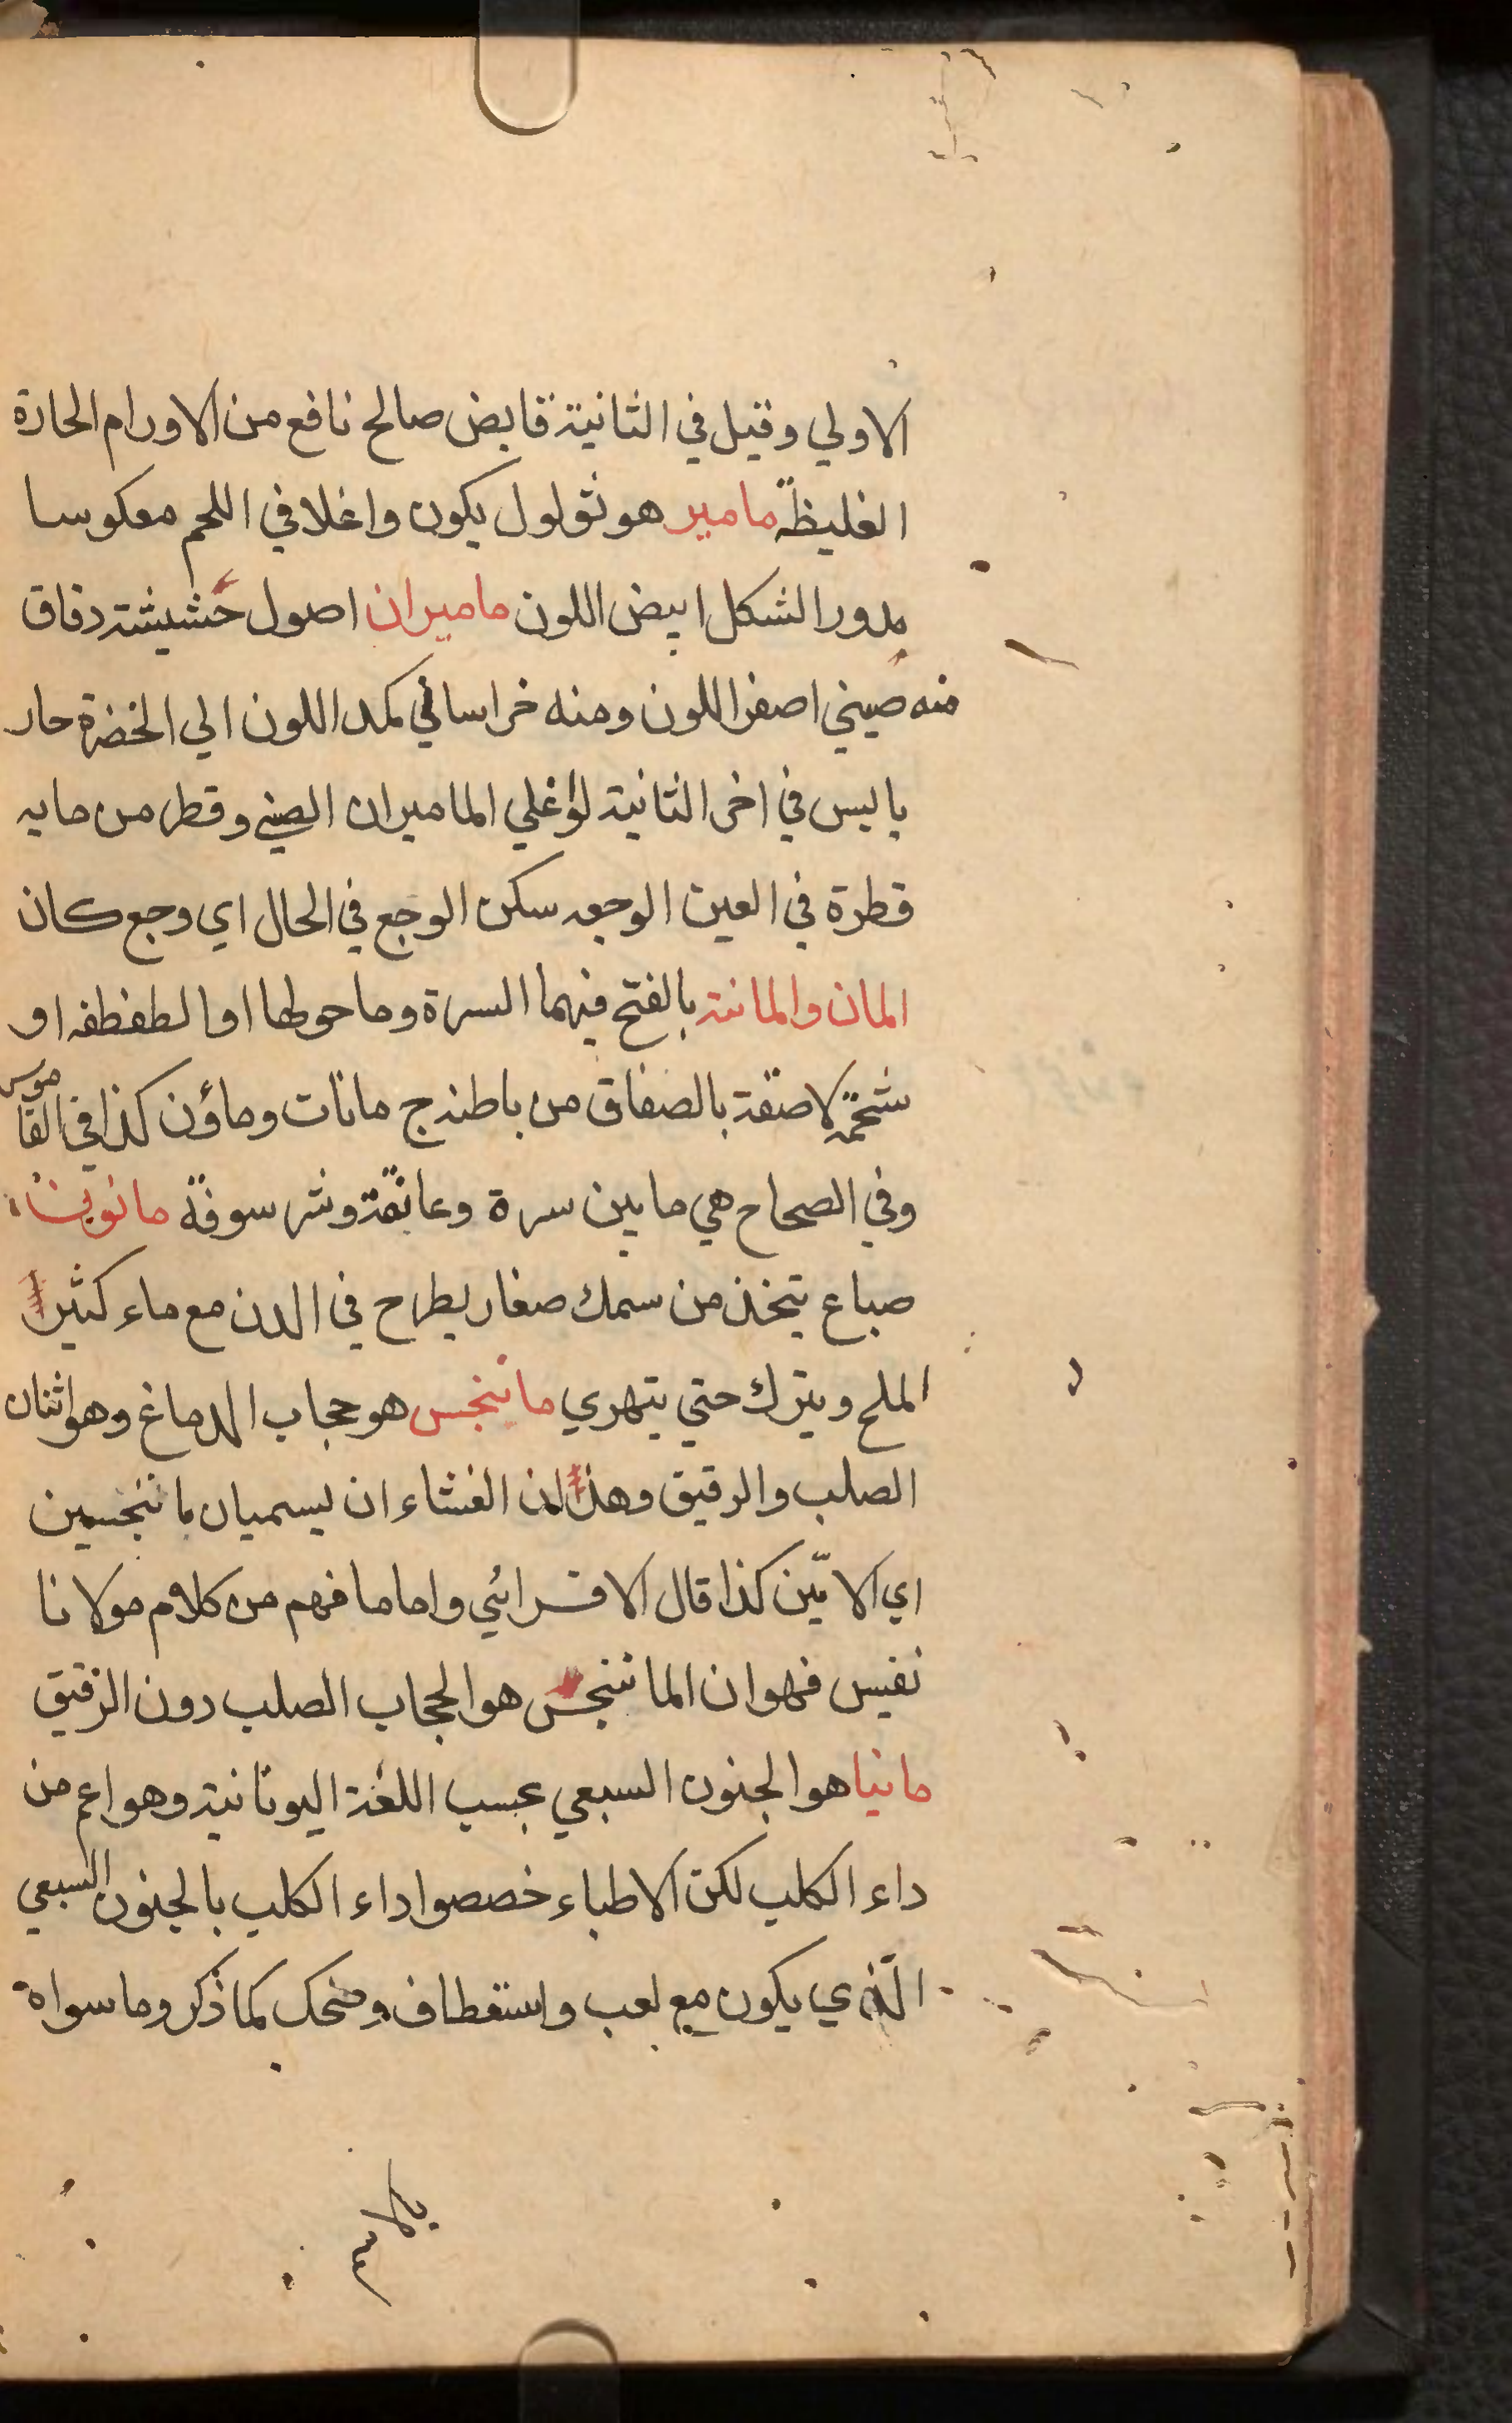 الاولي وقيل في الثانية قابض صالح نافع من الاورام الحارة
الغليظة مامير هو ثولول يكون واغلا في اللحم معكوسا
مدور الشكل ابيض اللون ماميران اصول حشيشة دقاق
منه صيني اصفر اللون ومنه خراساني كمد اللون الي الخضرة حار
يابس في اخر الثانية لؤ غلي الماميران الصيني وقطر من مايه
قطرة في العين الوجعه سكن الوجع في الحال اي وجع كان
المان والمانة بالفتح فيهما السرة وما حولها او الطفطفه او
شحمة لاصقة بالصفاق من باطنه ج مانات وماؤن كذا في القاموس
وفي الصحاح هي ما بين سرة وعانقة وشرسوفة
صباع يتخذ من سمك صغار يطرح في الدن مع ماء كثير
الملح ويترك حتي يتهري ماننجس هو حجاب الدماغ وهو اثنان
الصلب والرقيق وهذان الغشاء ان يسميان ماننجسين
اي الامين كذا قال الاقسرائي واما ما فهم من كلام مولانا
نفيس فهو ان الماننجس هو الحجاب الصلب دون الرقيق
مانيا هو الجنون السبعي بحسب اللغة اليونانية وهو اعم من
داء الكلب لكن الاطباء خصصوا داء الكلب بالجنون السبعي
الذي يكون مع لعب واستعطاف وضحك كما ذكر وما سواه